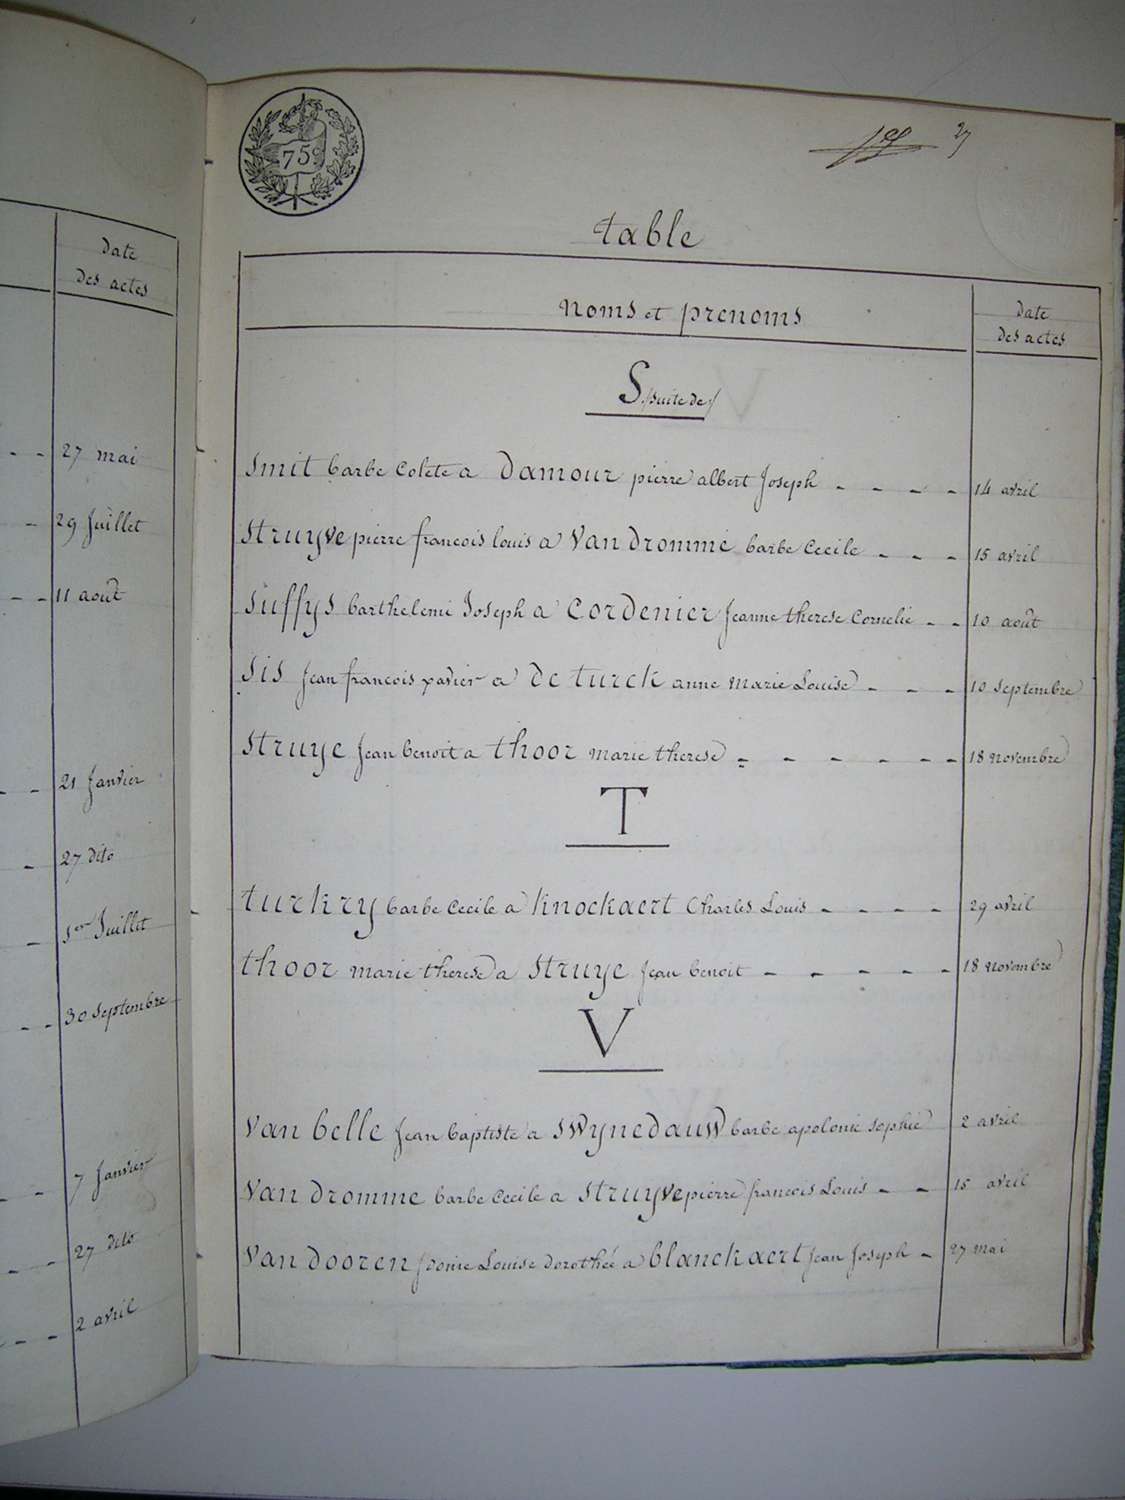 Date
Des actes
27 mai
29 Juillet
11 août
21 Janvier
27 dito
1er Juillet
30 Septembre
7 Janvier
27 dito
2 avril
75c
27
table
noms et prenoms
Date
Des actes
S /suite de/
Smit barbe Colete a Damour pierre albert Joseph
14 avril
Struyve pierre francois louis a Van Dromme barbe Cecile
15 avril
Suffys barthelemi Joseph a Cordenier Jeanne therese Cornelie
10 août
Sis Jean francois xavier a De turck anne Marie Louise
10 Septembre
Struye Jean benoit a thoor marie therese
18 novembre
T
turkry barbe Cecile a Knockaert Charles Louis
29 avril
thoor marie therese a Struye Jean benoit
18 novembre
V
Van belle Jean baptiste a Swynedauw barbe apolonie Sophie
2 avril
Van Dromme barbe Cecile a Struyve pierre francois Louis
15 avril
Van Dooren Louise Dorothée a blanckaert Jean Joseph
27 mai